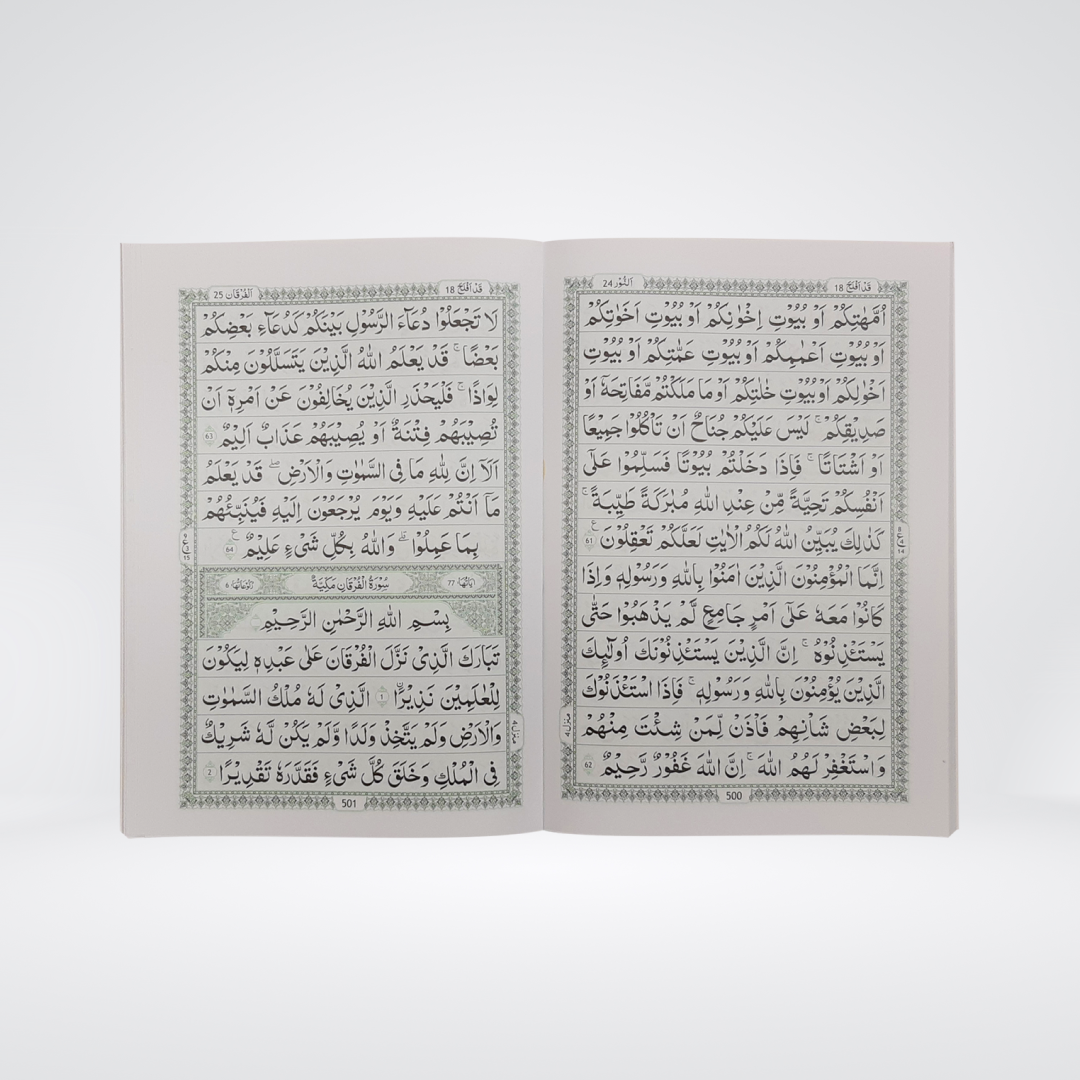 قَدْ اَفْلَحَ 18
اَلنُّوْر 24
اُمَّهٰتِكُمْ اَوْ بُيُوْتِ اِخْوَانِكُمْ اَوْ بُيُوْتِ اَخَوٰتِكُمْ
اَوْ بُيُوْتِ اَعْمَامِكُمْ اَوْ بُيُوْتِ عَمّٰتِكُمْ اَوْ بُيُوْتِ
اَخْوَالِكُمْ اَوْ بُيُوْتِ خٰلٰتِكُمْ اَوْ مَا مَلَكْتُمْ مَّفَاتِحَهٗۤ اَوْ
صَدِيْقِكُمْ ؕ لَيْسَ عَلَيْكُمْ جُنَاحٌ اَنْ تَاْكُلُوْا جَمِيْعًا
اَوْ اَشْتَاتًا ؕ فَاِذَا دَخَلْتُمْ بُيُوْتًا فَسَلِّمُوْا عَلٰۤى
اَنْفُسِكُمْ تَحِيَّةً مِّنْ عِنْدِ اللّٰهِ مُبٰرَكَةً طَيِّبَةً ؕ
كَذٰلِكَ يُبَيِّنُ اللّٰهُ لَكُمُ الْاٰيٰتِ لَعَلَّكُمْ تَعْقِلُوْنَ 61
اِنَّمَا الْمُؤْمِنُوْنَ الَّذِيْنَ اٰمَنُوْا بِاللّٰهِ وَرَسُوْلِهٖ وَاِذَا
كَانُوْا مَعَهٗ عَلٰۤى اَمْرٍ جَامِعٍ لَّمْ يَذْهَبُوْا حَتّٰى
يَسْتَئْذِنُوْهُ ؕ اِنَّ الَّذِيْنَ يَسْتَئْذِنُوْنَكَ اُولٰٓئِكَ
الَّذِيْنَ يُؤْمِنُوْنَ بِاللّٰهِ وَرَسُوْلِهٖ ۚ فَاِذَا اسْتَئْذَنُوْكَ
لِبَعْضِ شَاْنِهِمْ فَاْذَنْ لِّمَنْ شِئْتَ مِنْهُمْ
وَاسْتَغْفِرْ لَهُمُ اللّٰهَ ؕ اِنَّ اللّٰهَ غَفُوْرٌ رَّحِيْمٌ 62
منزل ٤
500
قَدْ اَفْلَحَ 18
اَلْفُرْقَان 25
لَا تَجْعَلُوْا دُعَآءَ الرَّسُوْلِ بَيْنَكُمْ كَدُعَآءِ بَعْضِكُمْ
بَعْضًا ؕ قَدْ يَعْلَمُ اللّٰهُ الَّذِيْنَ يَتَسَلَّلُوْنَ مِنْكُمْ
لِوَاذًا ۚ فَلْيَحْذَرِ الَّذِيْنَ يُخَالِفُوْنَ عَنْ اَمْرِهٖۤ اَنْ
تُصِيْبَهُمْ فِتْنَةٌ اَوْ يُصِيْبَهُمْ عَذَابٌ اَلِيْمٌ 63
اَلَاۤ اِنَّ لِلّٰهِ مَا فِى السَّمٰوٰتِ وَالْاَرْضِ ؕ قَدْ يَعْلَمُ
مَاۤ اَنْتُمْ عَلَيْهِ وَيَوْمَ يُرْجَعُوْنَ اِلَيْهِ فَيُنَبِّئُهُمْ
بِمَا عَمِلُوْا ؕ وَاللّٰهُ بِكُلِّ شَىْءٍ عَلِيْمٌ 64
اٰيَاتُهَا 77 سُوْرَةُ الْفُرْقَانِ مَكِّيَّةٌ رُكُوْعَاتُهَا 6
بِسْمِ اللّٰهِ الرَّحْمٰنِ الرَّحِيْمِ
تَبَارَكَ الَّذِىْ نَزَّلَ الْفُرْقَانَ عَلٰى عَبْدِهٖ لِيَكُوْنَ
لِلْعٰلَمِيْنَ نَذِيْرًا 1 الَّذِىْ لَهٗ مُلْكُ السَّمٰوٰتِ
وَالْاَرْضِ وَلَمْ يَتَّخِذْ وَلَدًا وَّلَمْ يَكُنْ لَّهٗ شَرِيْكٌ
فِى الْمُلْكِ وَخَلَقَ كُلَّ شَىْءٍ فَقَدَّرَهٗ تَقْدِيْرًا 2
منزل ٤
501